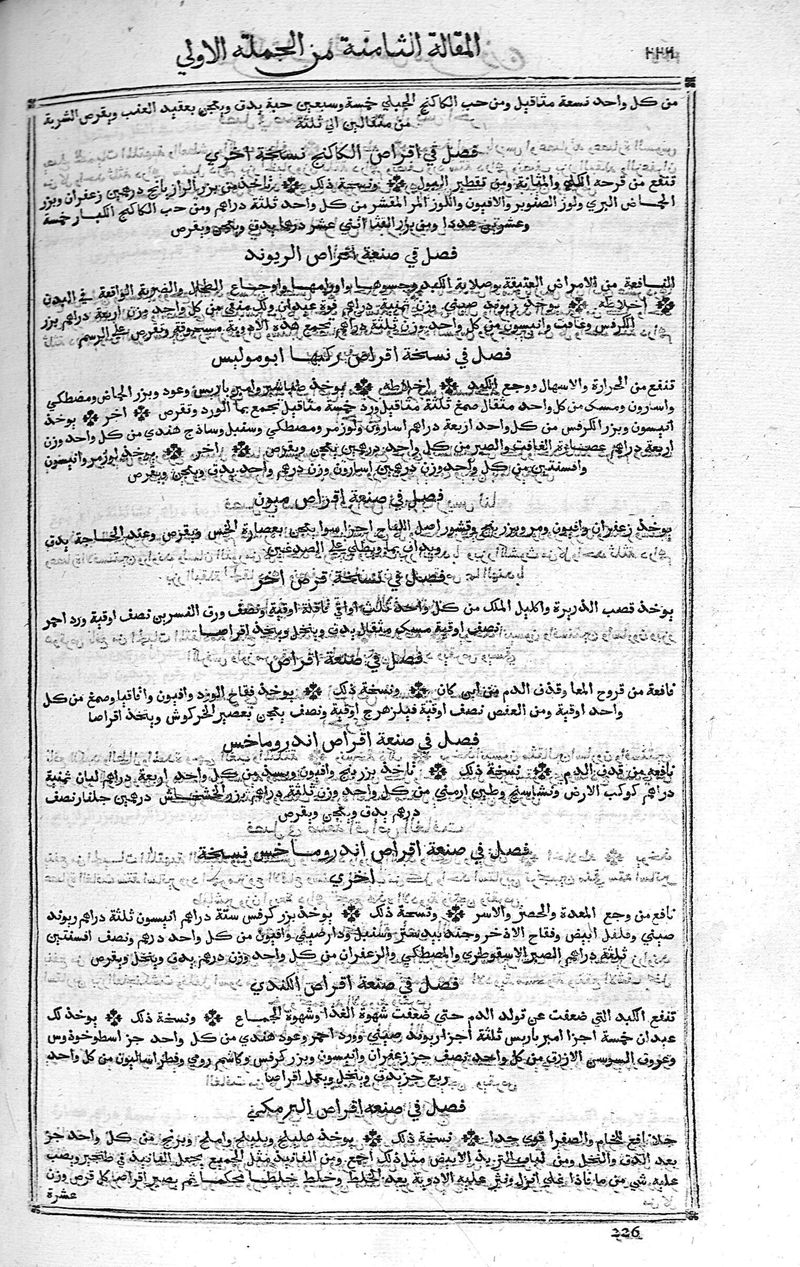 المقالة الثامنة من الجملة الاولي
٢٢٦
من كل واحد تسعة مثاقيل ومن حب الكاكنج الجبلي خمسة وسبعين حبة يدق ويعجن بعقيد العنب ويقرص الشربة
من مثقالين الي ثلثة
فصل في اقراص الكاكنج نسخة اخري
تنفع من قرحة الكلي والمثانة ومن تقطير البول ونسخة ذلك تاخذ من بزر الرازيانج درهمين زعفران وبزر
الحماض البري ولوز الصنوبر والافيون واللوز المر المقشر من كل واحد ثلثة دراهم ومن حب الكاكنج الكبار خمسة
وعشرين عددا ومن بزر القثا اثني عشر درهما يدق ويعجن ويقرص
فصل في صنعة اقراص الريوند
النافعة من الامراض العتيقة بوصلابة الكبد وجسوها واورامها واوجاع الطحال والضربة الواقعة في البدن
اخلاطه يوخذ ريوند صيني وزن ثمنية دراهم فوة عيدان ولك منقي من كل واحد وزن اربعة دراهم بزر
الكرفس وغافت وانيسون من كل واحد وزن ثلثة دراهم تجمع هذه الادوية مسحوقة وتقرص علي الرسم
فصل في نسخة اقراص ركبها ابومولیس
تنفع من الحرارة والاسهال ووجع الكبد اخلاطه يوخذ طباشير وامبرباريس وعود وبزر الحماض ومصطكي
واسارون ومسك من كل واحد مثقال صمغ ثلثة مثاقيل ورد خمسة مثاقيل يجمع بما الورد وتقرص اخر يوخذ
انيسون وبزر الكرفس من كل واحد اربعة دراهم اسارون ولوز مر ومصطكي وسنبل وساذج هندي من كل واحد وزن
اربعة دراهم عصارة الغافت والصبر من كل واحد درهمين يعجن ويقرص اخر يوخذ لوز مر وانيسون
وافسنتين من كل واحد وزن درهمين اسارون وزن درهم واحد يدق ويعجن ويقرص
فصل في صنعة اقراص ميون
يوخذ زعفران وافيون ومر وبزر بنج وقشور اصل اللفاح اجزا سوا يعجن بعصارة الخس ويقرص وعند الحاجة يدق
ويداف بما ويطلي علي الصدغين
فصل في نسخة قرص اخر
يوخذ قصب الذريرة واكليل الملك من كل واحد ثلث اواقي قاقلة اوقية ونصف ورق النسرين نصف اوقية ورد احمر
نصف اوقية مسك مثقال يدق وينخل ويتخذ اقراصا
فصل في صنعة اقراص
نافعة من قروح المعا وقذف الدم من اين كان ونسخة ذلك يوخذ فقاح الورد وافيون واقاقيا وصمغ من كل
واحد اوقية ومن العفص نصف اوقية فيلزهرج اوقية ونصف يعجن بعصير الخرکوش ويتخذ اقراصا
فصل في صنعة اقراص اندروماخس
نافعه من قذف الدم نسخة ذلك تاخذ بزر بنج وافيون وبسد من كل واحد اربعة دراهم لبان ثمنية
دراهم كوكب الارض ونشاستج وطين ارمني من كل واحد وزن ثلثة دراهم بزر الخشخاش درهمين جلنار نصف
درهم يدق ويعجن ويقرص
فصل في صنعة اقراص اندروماخس نسخة
اخري
نافع من وجع المعدة والحصر والاسر ونسخة ذلك يوخذ بزر كرفس ستة دراهم انيسون ثلثة دراهم ريوند
صيني وفلفل ابيض وفقاح الاذخر وجندبيدستر وسنبل ودارصيني وافيون من كل واحد درهم ونصف افسنتين
ثلثة دراهم الصبر الاسقوطري والمصطكي والزعفران من كل واحد وزن درهم يدق وينخل ويقرص
فصل في صنعة اقراص الكندي
تنفع الكبد التي ضعفت عن تولد الدم حتي ضعفت شهوة الغذا وشهوة الجماع ونسخة ذلك يوخذ لك
عيدان خمسة اجزا امبرباريس ثلثة اجزا ريوند صيني وورد احمر وعود هندي من كل واحد جز اسطوخوذوس
وعروق السوسن الازرق من كل واحد نصف جز زعفران وانيسون وبزر كرفس وكاشم رومي وفطراساليون من كل واحد
ربع جز يدق وينخل ويعمل اقراصا
فصل في صنعه اقراص البرمكي
جلا نافع للخام والصفرا قوي جدا نسخة ذلك يوخذ هليلج وبليلج واملج وبرنج من كل واحد جز
بعد الدق والنخل ومن لباب التربد الابيض مثل ذلك اجمع ومن الفانيد مثل الجميع يجعل الفانيد في طنجير ويصب
عليه شي من ما فاذا غلي انزل ونثر عليه الادوية بعد الخلط وخلط خلطا محكما ثم يصير اقراصا كل قرص وزن
عشرة
226